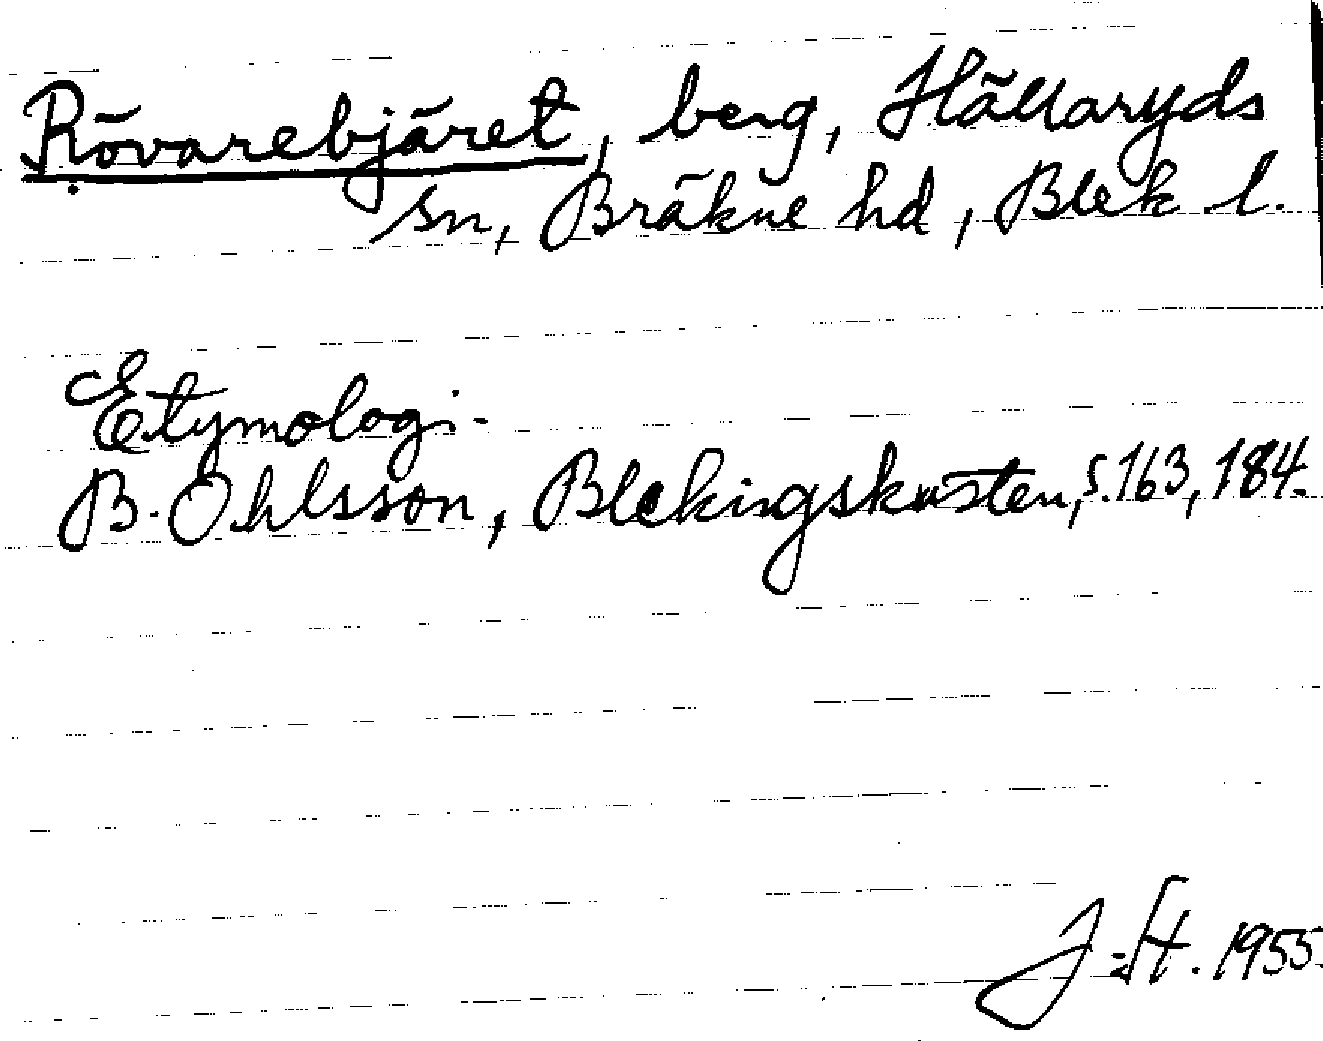 Rövarebjäret, berg, Hällaryds
sn, Bräkne hd, Blek l.
Etymologi.
B. Ohlsson, Blekingskusten, s. 163, 184.
1955.